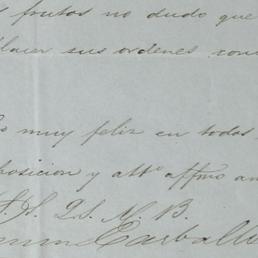 frutos no dudo que
sus ordenes con
muy feliz en todas
posicion y atto affmo am
S. S. Q. S. M. B.
Carballo